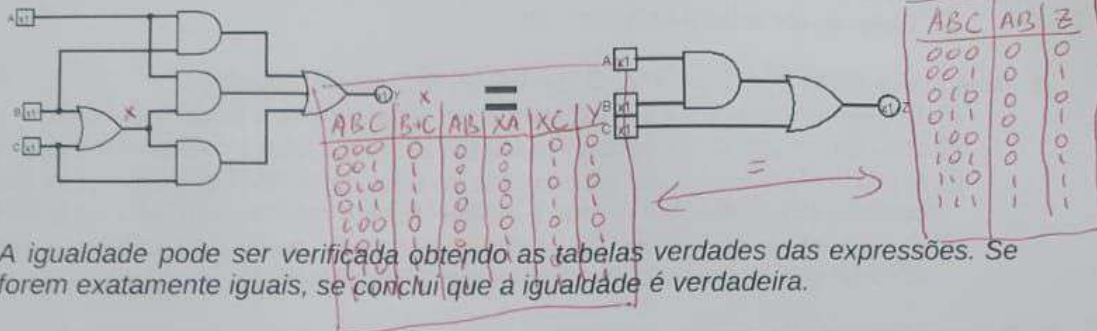 A x1
B x1
C x1
X
x1 Y
=
A x1
B x1
C x1
x1 Z
X
ABC B+C AB XA XC Y
000 0 0 0 0 0
001 1 0 0 1 1
010 1 0 0 0 0
011 1 0 0 1 1
100 0 0 0 0 0
=
ABC AB Z
000 0 0
001 0 1
010 0 0
011 0 1
100 0 0
101 0 1
110 1 1
111 1 1
A igualdade pode ser verificada obtendo as tabelas verdades das expressões. Se
forem exatamente iguais, se conclui que a igualdade é verdadeira.